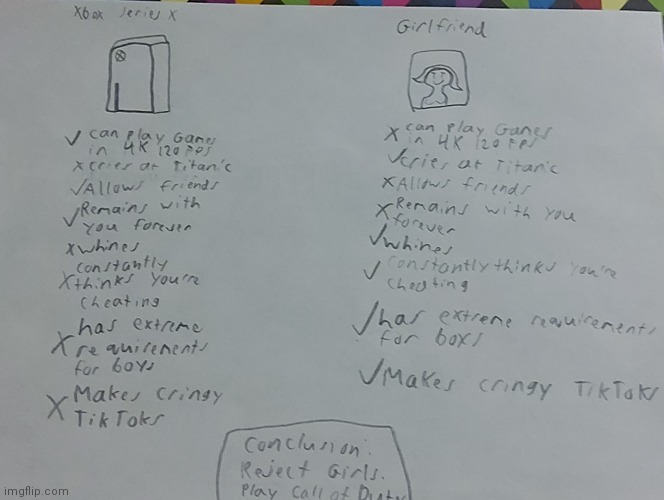 Xbox Series X
✓ can play Games
in 4K 120 FPS
x cries at Titanic
✓ Allows friends
✓ Remains with
you forever
x whines
constantly
x thinks you're
cheating
x has extreme
requirements
for boys
x Makes cringy
TikToks
Girlfriend
x can play Games
in 4K 120 FPS
✓ cries at Titanic
x Allows friends
x Remains with you
forever
✓ whines
✓ constantly thinks you're
cheating
✓ has extreme requirements
for boys
✓ Makes cringy TikToks
Conclusion:
Reject Girls.
Play Call of Duty
imgflip.com